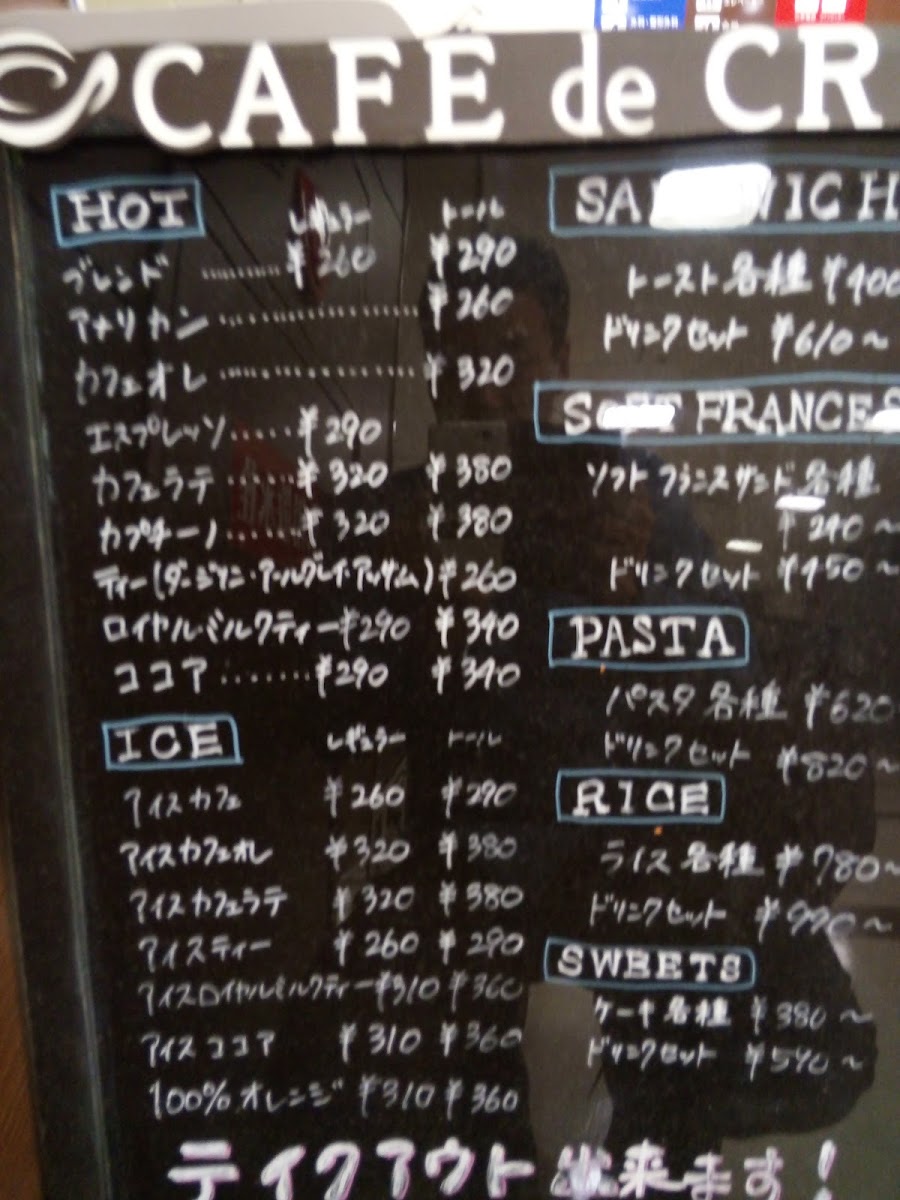 CAFE de CR
HOT レギュラー トール
ブレンド ........ ¥260 ¥290
アメリカン .................. ¥260
カフェオレ .................. ¥320
エスプレッソ ..... ¥290
カフェラテ ...... ¥320 ¥380
カプチーノ ....... ¥320 ¥380
ティー(ダージリン・アールグレイ・アッサム) ¥260
ロイヤルミルクティー ¥290 ¥340
ココア ....... ¥290 ¥340
ICE レギュラー トール
アイスカフェ ¥260 ¥290
アイスカフェオレ ¥320 ¥380
アイスカフェラテ ¥320 ¥380
アイスティー ¥260 ¥290
アイスロイヤルミルクティー ¥310 ¥360
アイスココア ¥310 ¥360
100%オレンジ ¥310 ¥360
SANDWICH
トースト各種 ¥400
ドリンクセット ¥610〜
SOFT FRANCES
ソフトフランスサンド各種
¥240〜
ドリンクセット ¥450〜
PASTA
パスタ各種 ¥620
ドリンクセット ¥820〜
RICE
ライス各種 ¥780〜
ドリンクセット ¥990〜
SWEETS
ケーキ各種 ¥380〜
ドリンクセット ¥590〜
テイクアウト出来ます!